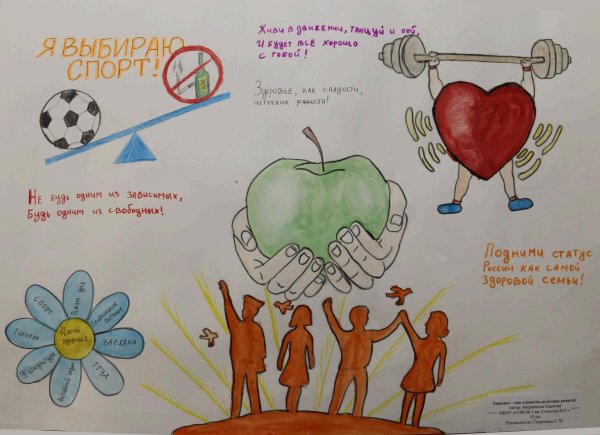 Я ВЫБИРАЮ
СПОРТ!
Живи в движении, танцуй и пой,
И будет всё хорошо
с тобой!
Здоровье, как сладости,
источник радости!
Не будь одним из зависимых,
Будь одним из свободных!
Подними статус
России как самой
здоровой семьи!
Цветок
здоровья
СПОРТ
Режим дня
Правильное
питание
ЗАРЯДКА
ТРУД
Активный
Физкультура
Гигиена
Здоровье – как сладости, источник радости!
Автор:
14 лет
Руководитель: